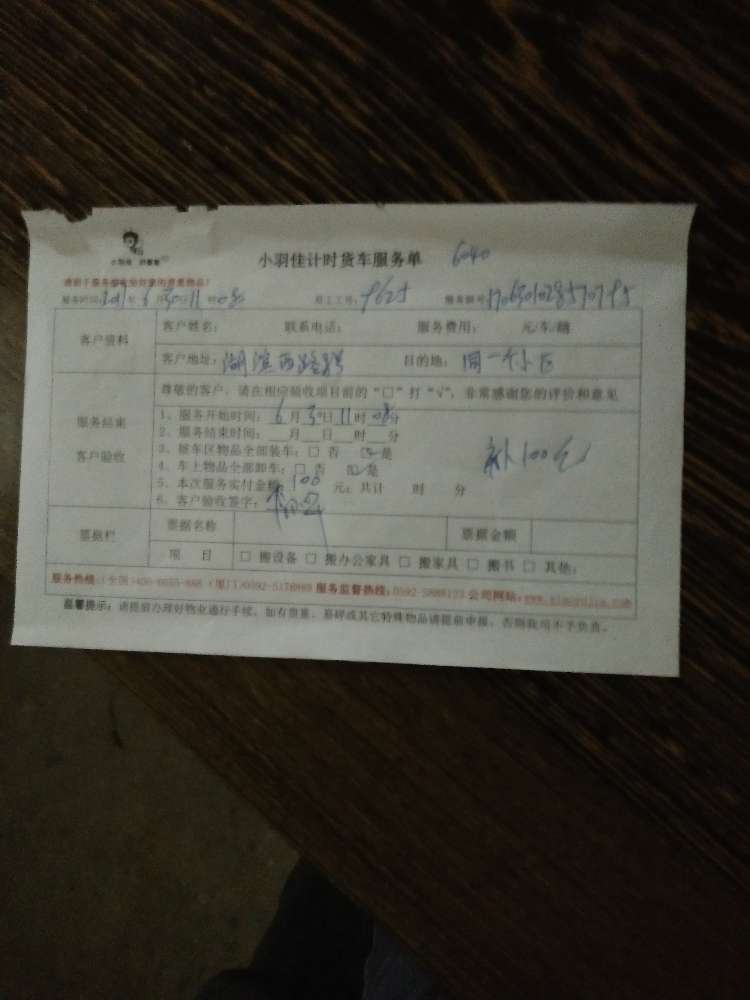 小羽佳 搬家
小羽佳计时货车服务单 6040
请勿于服务前收拾好您的贵重物品!
服务时间: 年 6 月 30 日 11 时 员工工号: 9625 服务编号:
客户资料
客户姓名: 联系电话: 服务费用: 元/车/趟
客户地址: 湖滨西路 目的地: 同一个小区
服务结束
客户验收
尊敬的客户,请在相应验收项目前的“□”打“√”,非常感谢您的评价和意见
1、服务开始时间: 6 月 30 日 11 时 分
2、服务结束时间: 月 日 时 分
3、 车区物品全部装车: □ 否 ☑ 是
4、车上物品全部卸车: □ 否 ☑ 是
5、本次服务实付金额: 100 元; 共计 时 分
6、客户验收签字:
补100元
票据栏
票据名称 票据金额
项 目 □ 搬设备 □ 搬办公家具 □ 搬家具 □ 搬书 □ 其他:
服务热线: (全国) (厦门) 服务监督热线: 公司网站:
温馨提示: 请提前办理好物业通行手续, 如有贵重、易碎或其它特殊物品请提前申报, 否则我司不予负责。